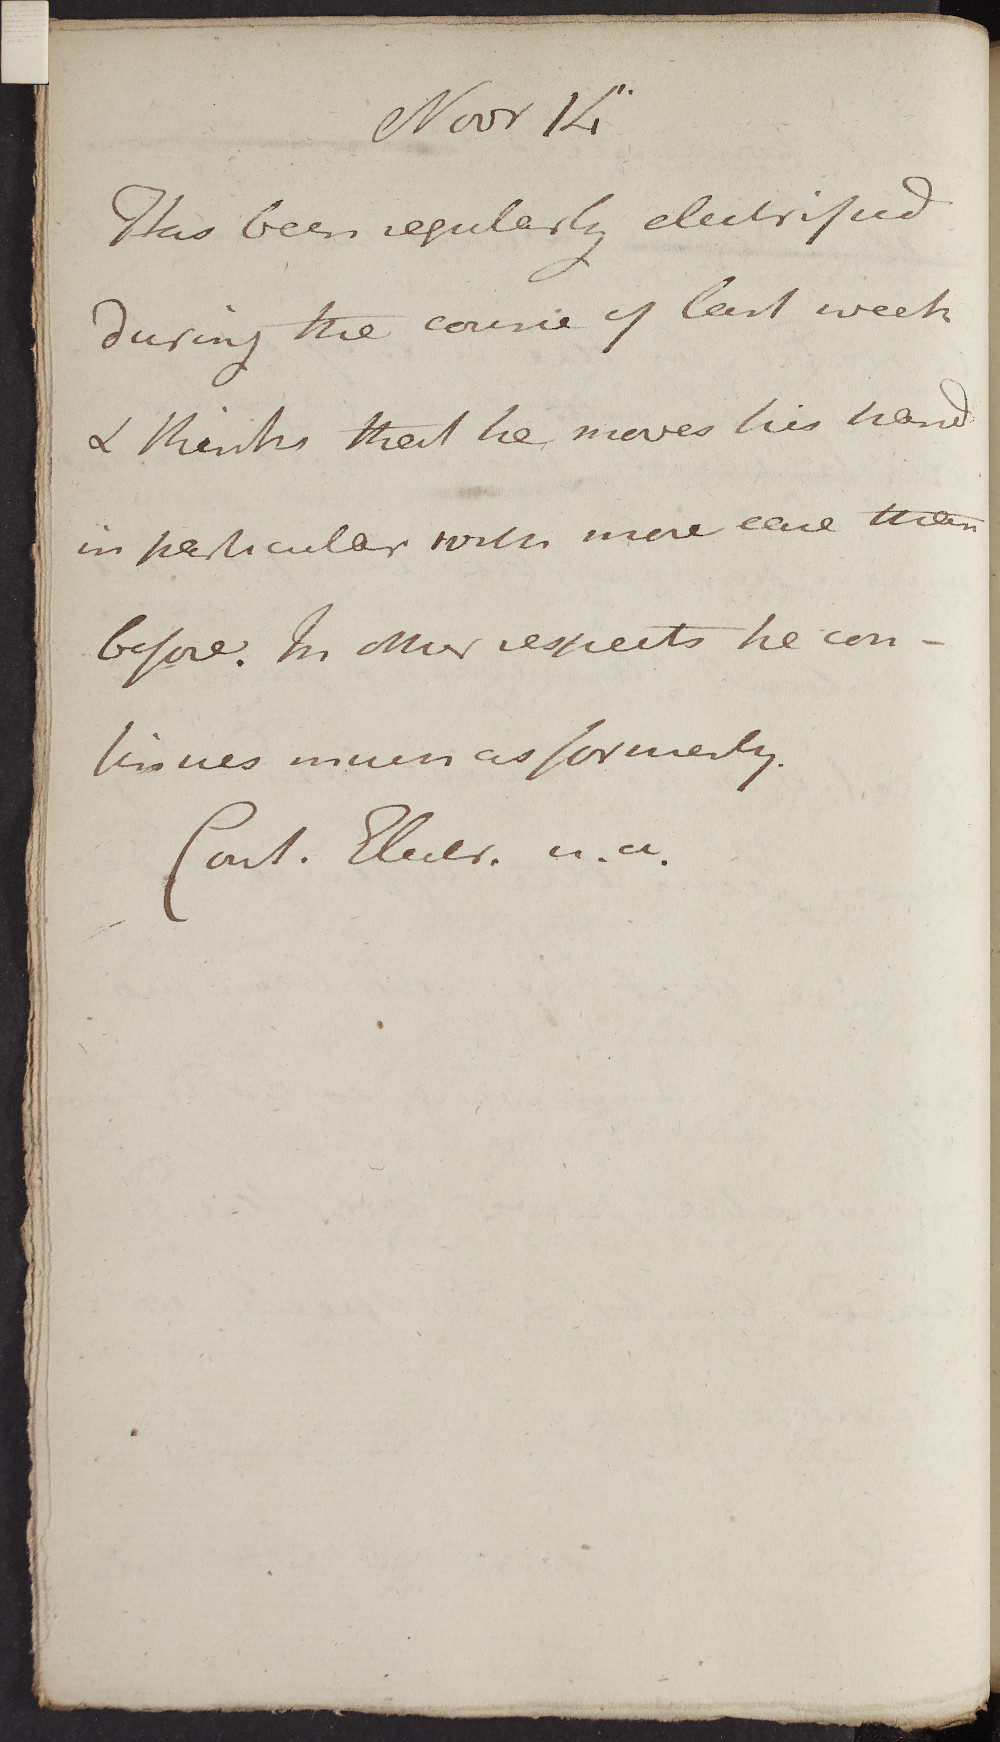 Novr 14"
Has been regularly electrified
during the course of last week
& thinks that he moves his hand
in particular with more ease than
before. In other respects he con-
tinues much as formerly.
Cont. Electr. u.a.